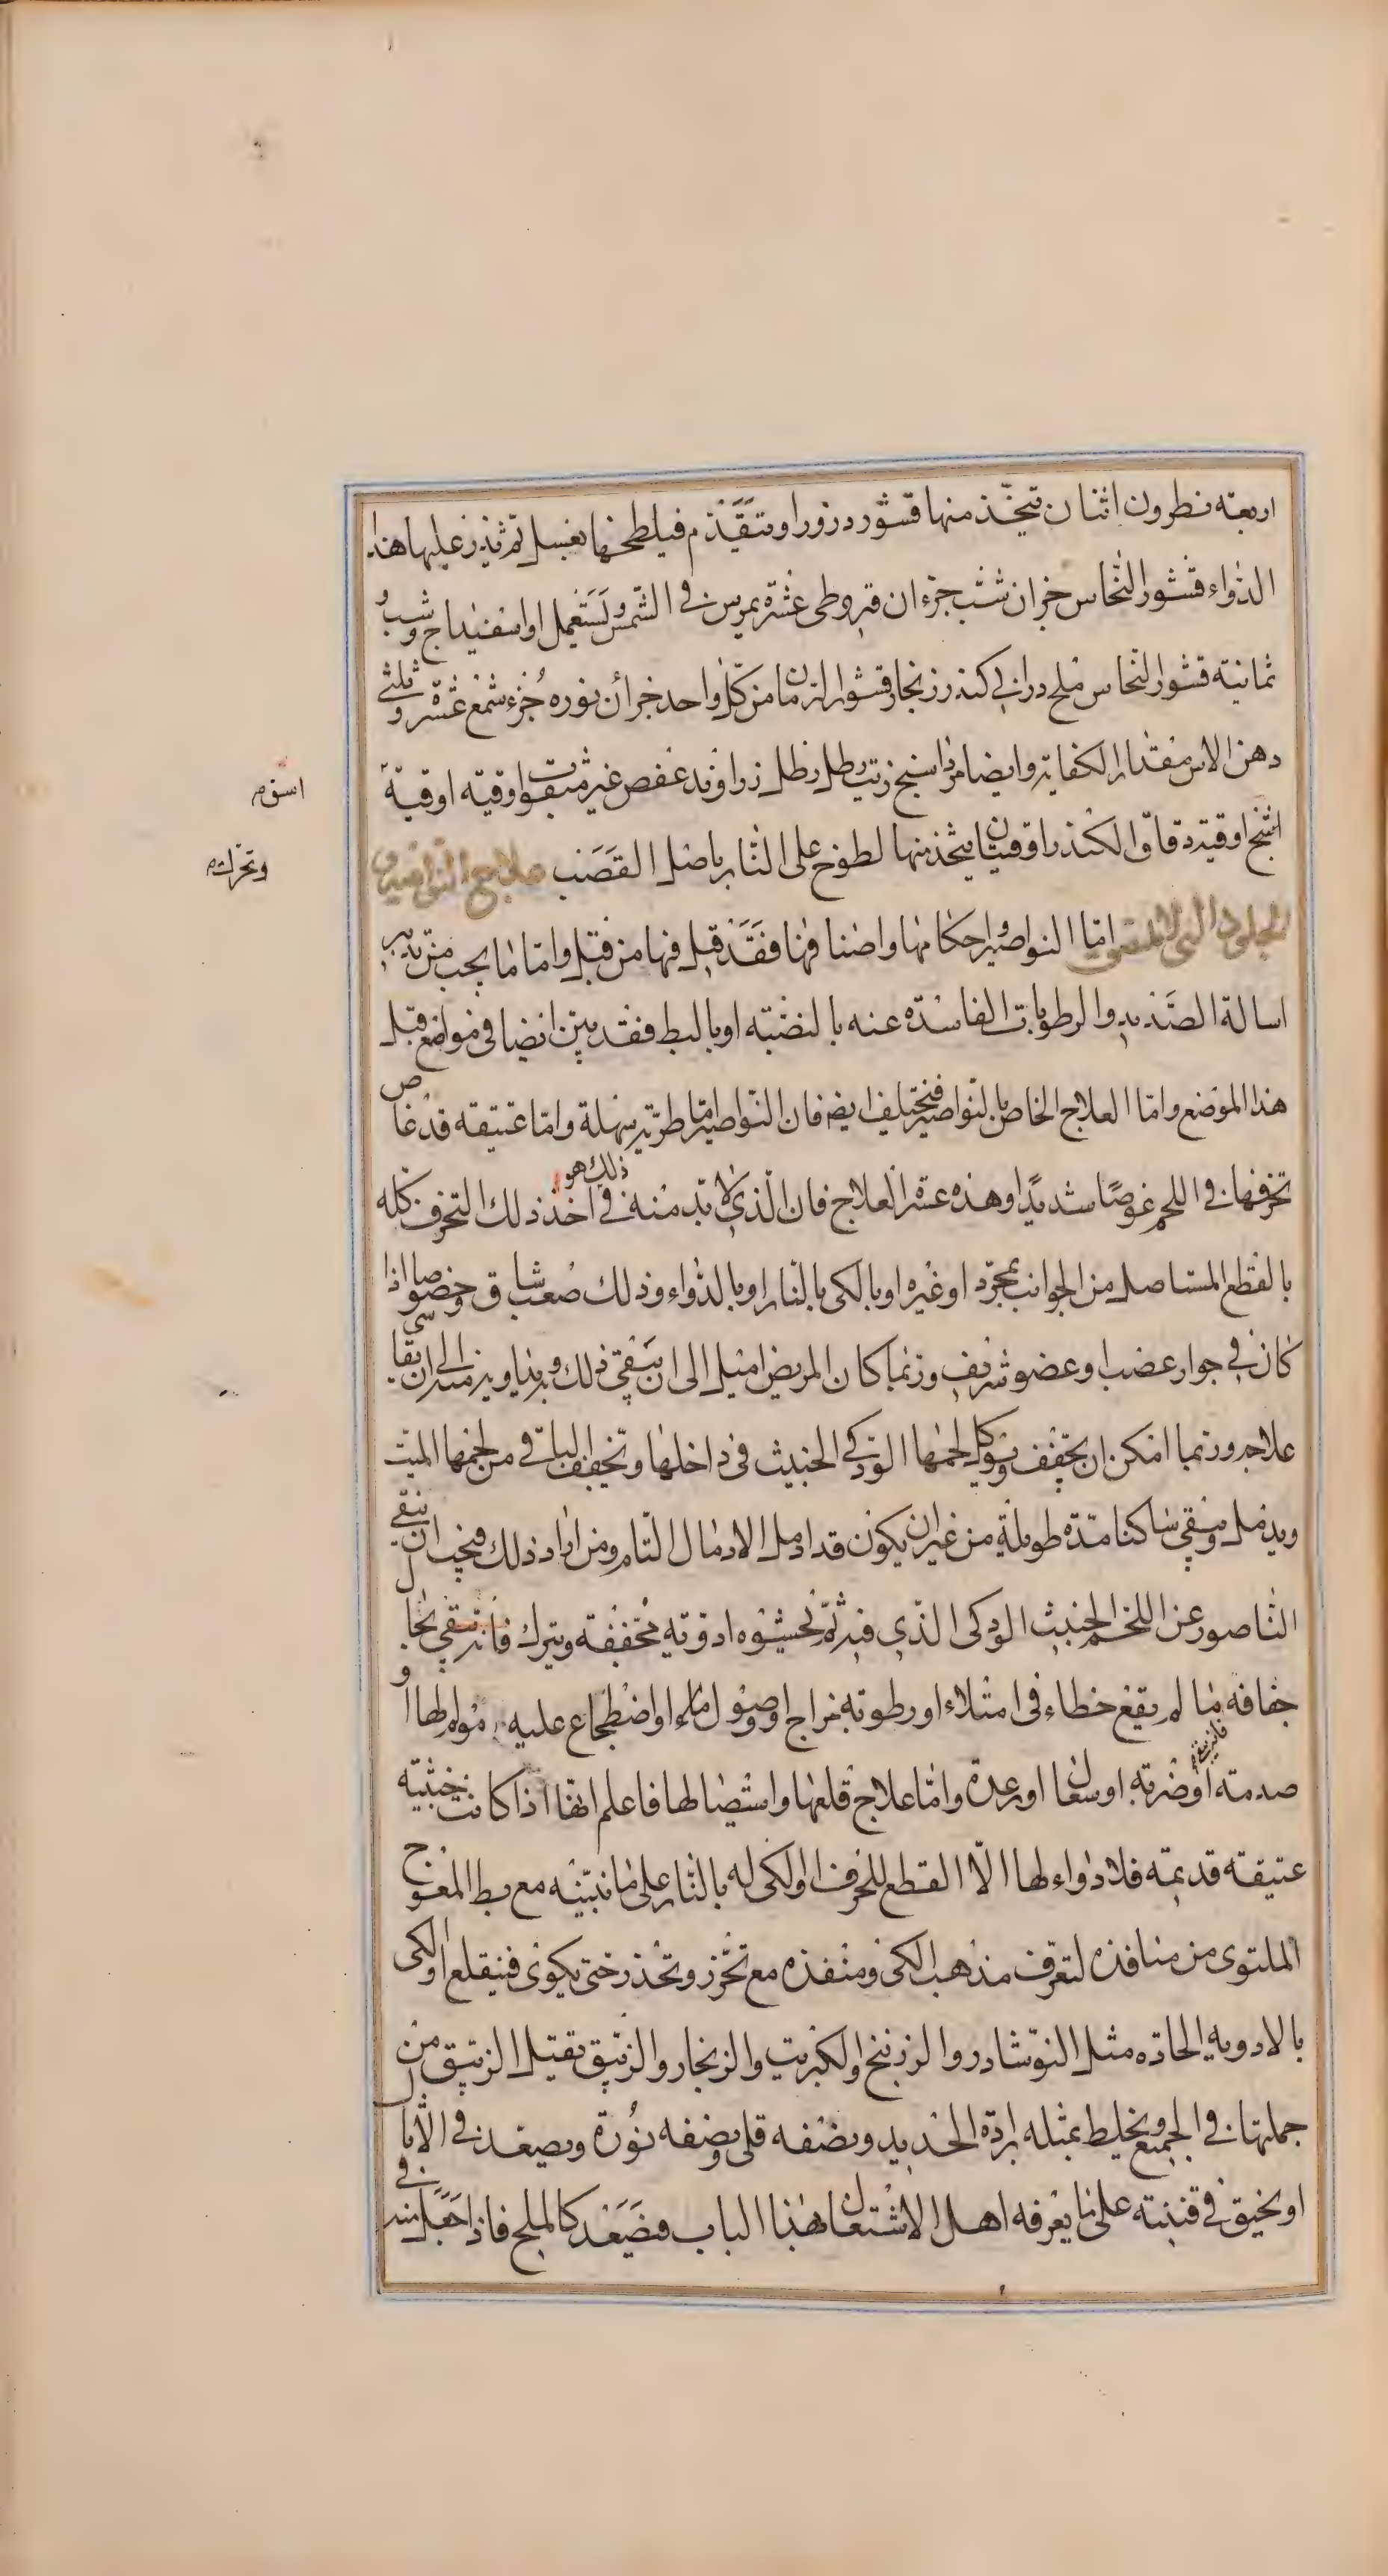 اربعة نطرون اثنان يتخذ منها قشور درورا ويتقدم فيلطخها بعسل ثم يذر عليها هذا
الدواء قشور النحاس جزان شب جزءان قيروطى عشرة يمرس فى الشمس ويستعمل او اسفيداج وشب و
ثمانية قشور النحاس ملح درانى كندر زنجار قشور الرمان من كل واحد جزأن نوره جزء شمع عشرة وثلثى
دهن الاس مقدار الكفاية وايضا مرداسنج زيت رطل رطل زراوند عفص غير مثقوب اوقية اوقية
اشج اوقية دقاق الكندر اوقيتان يتخذ منها لطوخ على النار باصل القصب علاج النواصير و
الجلود التى لا تلتصق اما النواصير واحكامها واصنافها فقد قيل فيها من قبل واما ما يجب من تدبير
اسالة الصديد والرطوبات الفاسدة عنه بالنصبة او بالبط فقد بين ايضا فى مواضع قبل
هذا الموضع واما العلاج الخاص بالنواصير فيختلف ايضا فان النواصير اما طرية سهلة واما عتيقة قد غاص
تخرفها فى اللحم غوصا شديدا وهذه عسرة العلاج فان الذى لا بد منه فى ذلك هو اخذ ذلك التخرف كله
بالقطع المستاصل من الجوانب بمجرد او غيره او بالكى بالنار او بالدواء وذلك صعب شاق وخصوصا اذا
كان فى جوار عصب او عضو شريف وربما كان المريض اميل الى ان يبقى ذلك به يداويه منه الى ان يقاسى
علاجه وربما امكن ان يجفف ويؤكل لحمها الودكى الخبيث فى داخلها وتجفيف الباقى من لحمها الميت
ويدمل ويبقى ساكنا مدة طويلة من غير ان يكون قد ادمل الادمال التام ومن اراد ذلك فيجب ان ينقى
الناصور عن اللحم الخبيث الودكى الذى فيه ثم تحشوه ادوية مجففة ويترك فانه يبقى بحال
جفافه ما لم يقع خطاء فى امتلاء او رطوبة مزاج او وصول ماء او اضطجاع عليه مولم لها او
صدمة او ضربة او سعال او رعدة واما علاج قلعها واستيصالها فاعلم انها اذا كانت خبيثة
عتيقة قديمة فلا دواء لها الا القطع للخرف او الكى له بالنار على ما نبينه مع بط المعوج
الملتوى من منافذه لتعرف مذهب الكى ومنفذه مع تحرز وتحذر حتى يكوى فينقلع او الكى
بالادوية الحادة مثل النوشادر والزرنيخ والكبريت والزنجار والزيبق بقتل الزيبق من
جملتها فى الجميع ويخلط بمثله برادة الحديد ونصفه قلى ونصفه نورة ويصعد فى الاثال
او يخيق فى قنينة على ما يعرفه اهل الاشتغال بهذا الباب فيصعد كالملح فاذا جعل منه فى